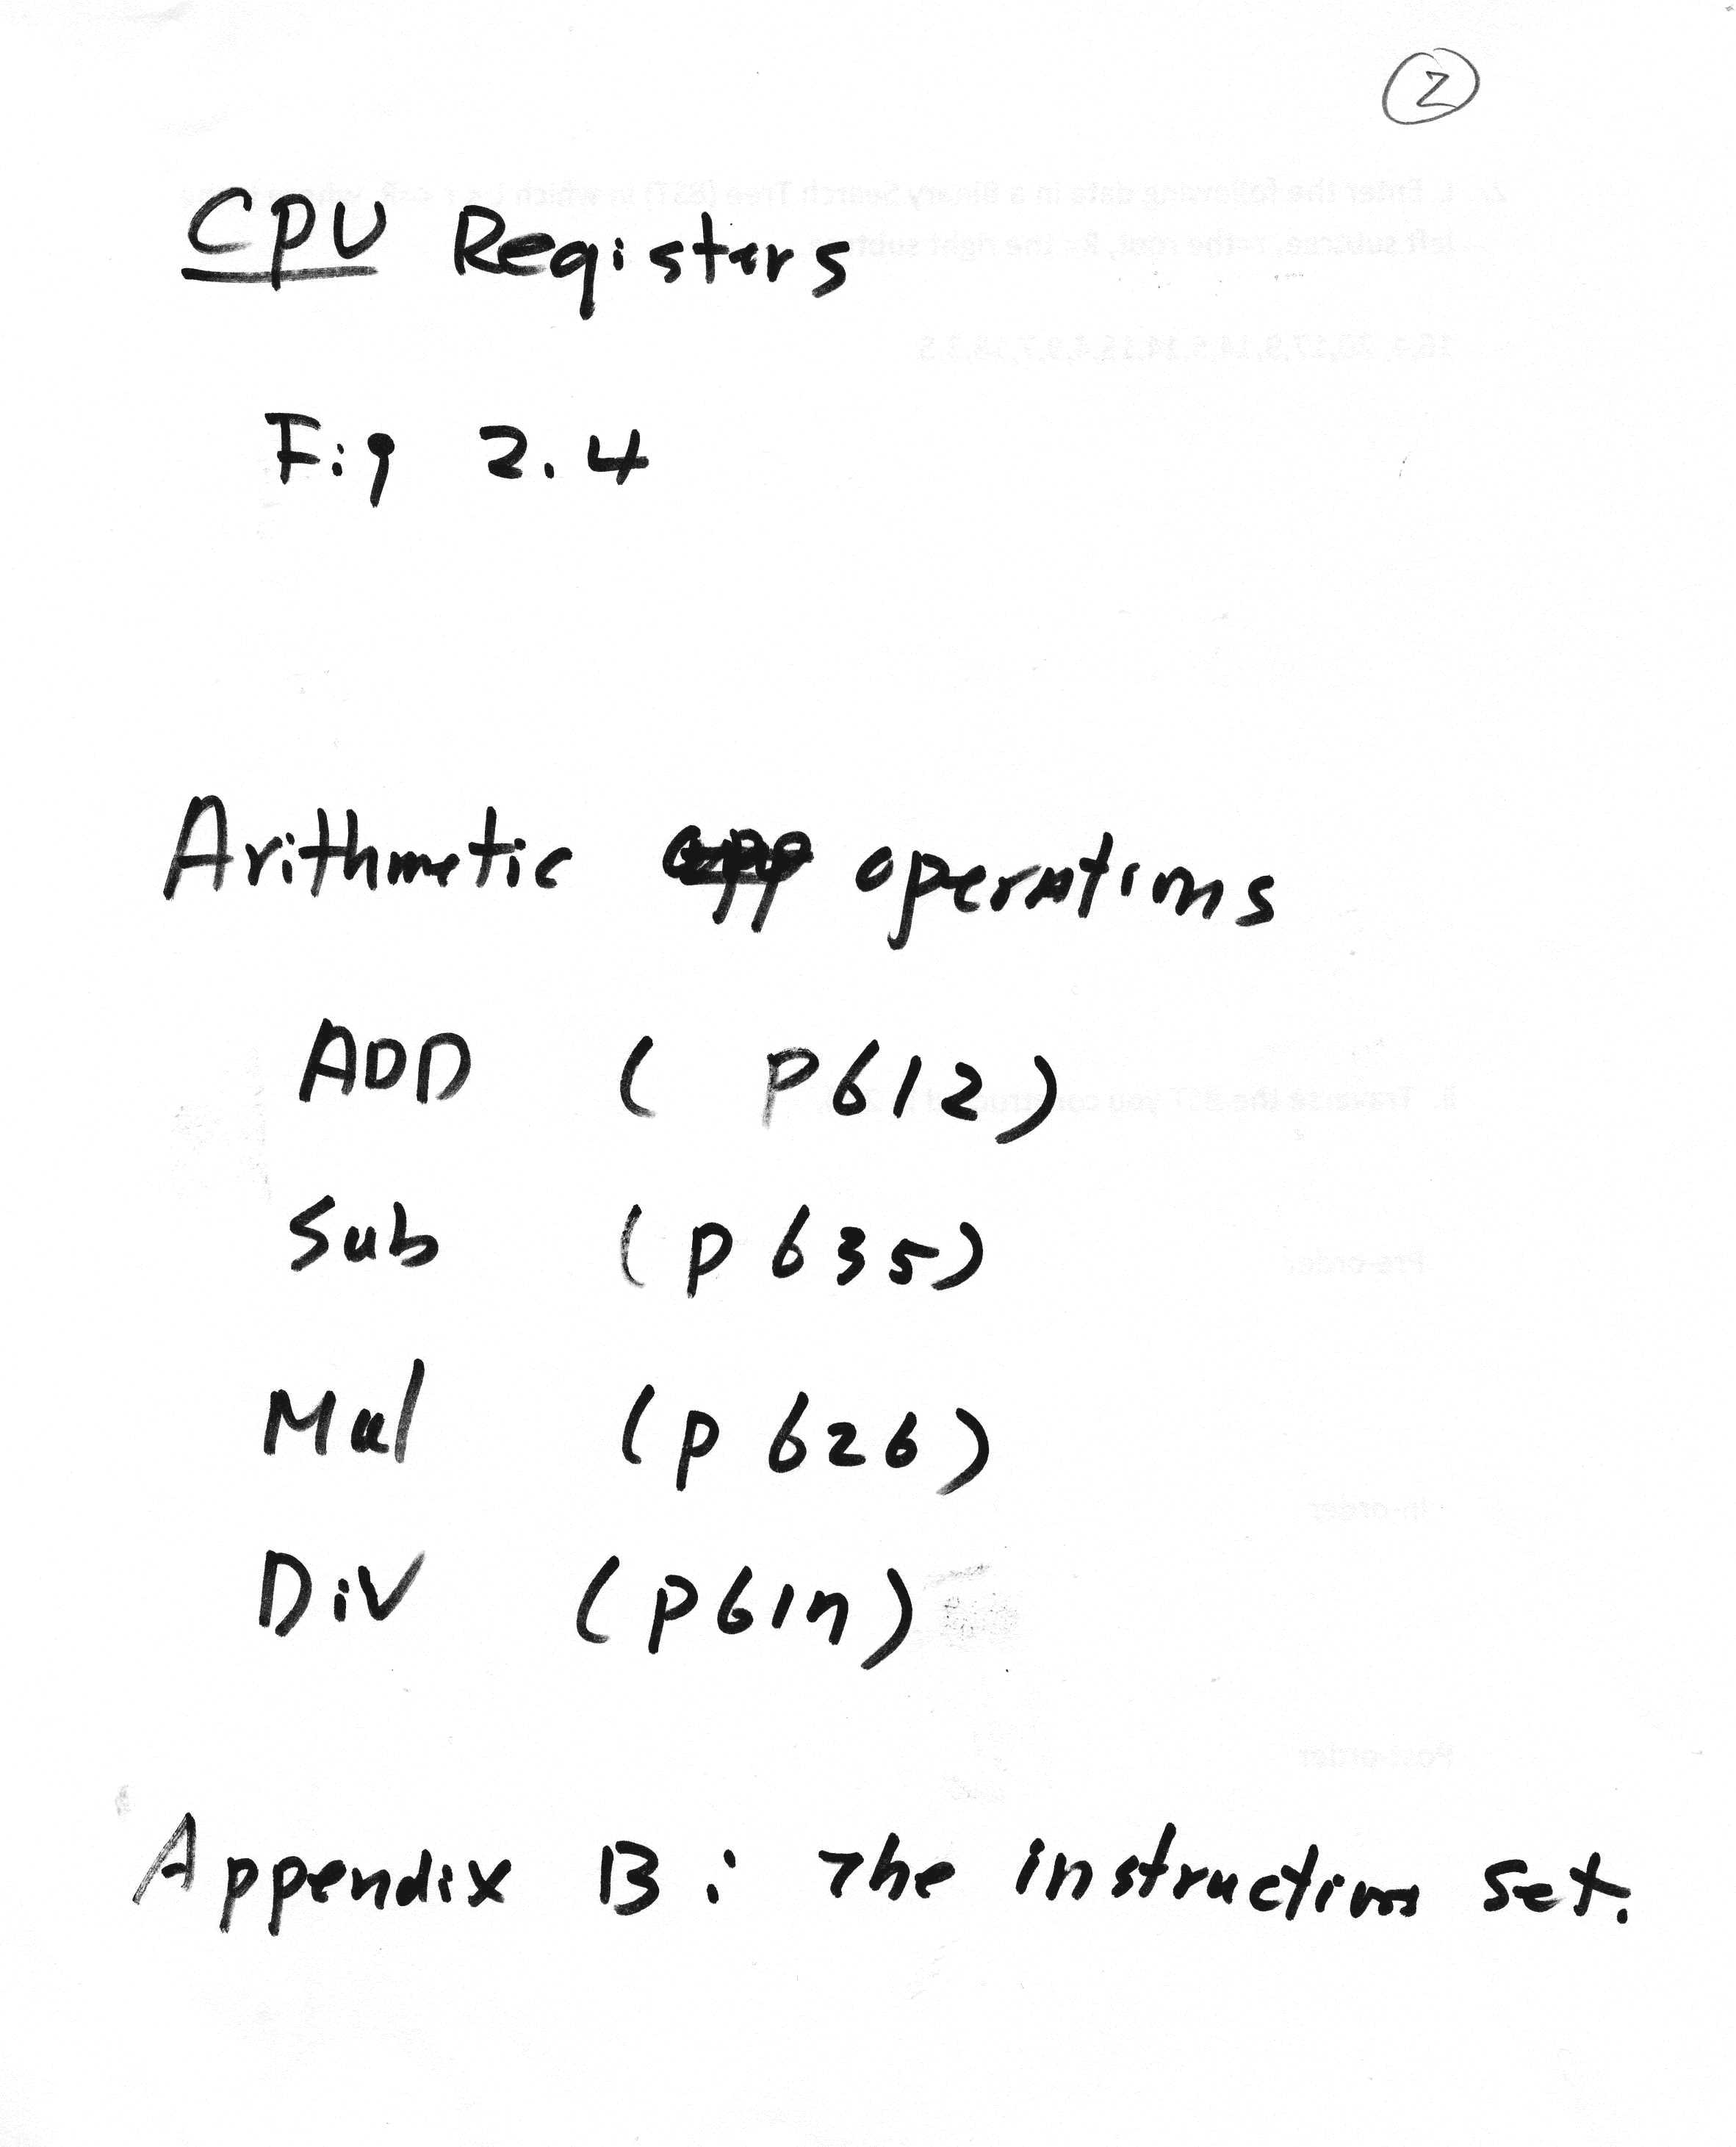 2
CPU Registers
Fig 2.4
Arithmetic operations
ADD ( P612)
Sub (p 635)
Mul (p 626)
Div (p617)
Appendix B: The instruction set.